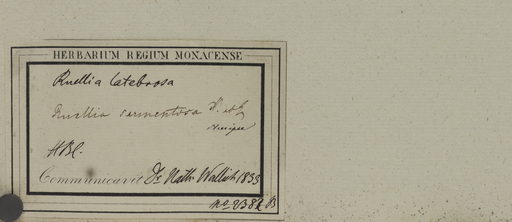 HERBARIUM REGIUM MONACENSE
Ruellia latebrosa
Ruellia sarmentosa
HBC.
Communicavit Dr. Nath. Wallich 1833
no 2382 B